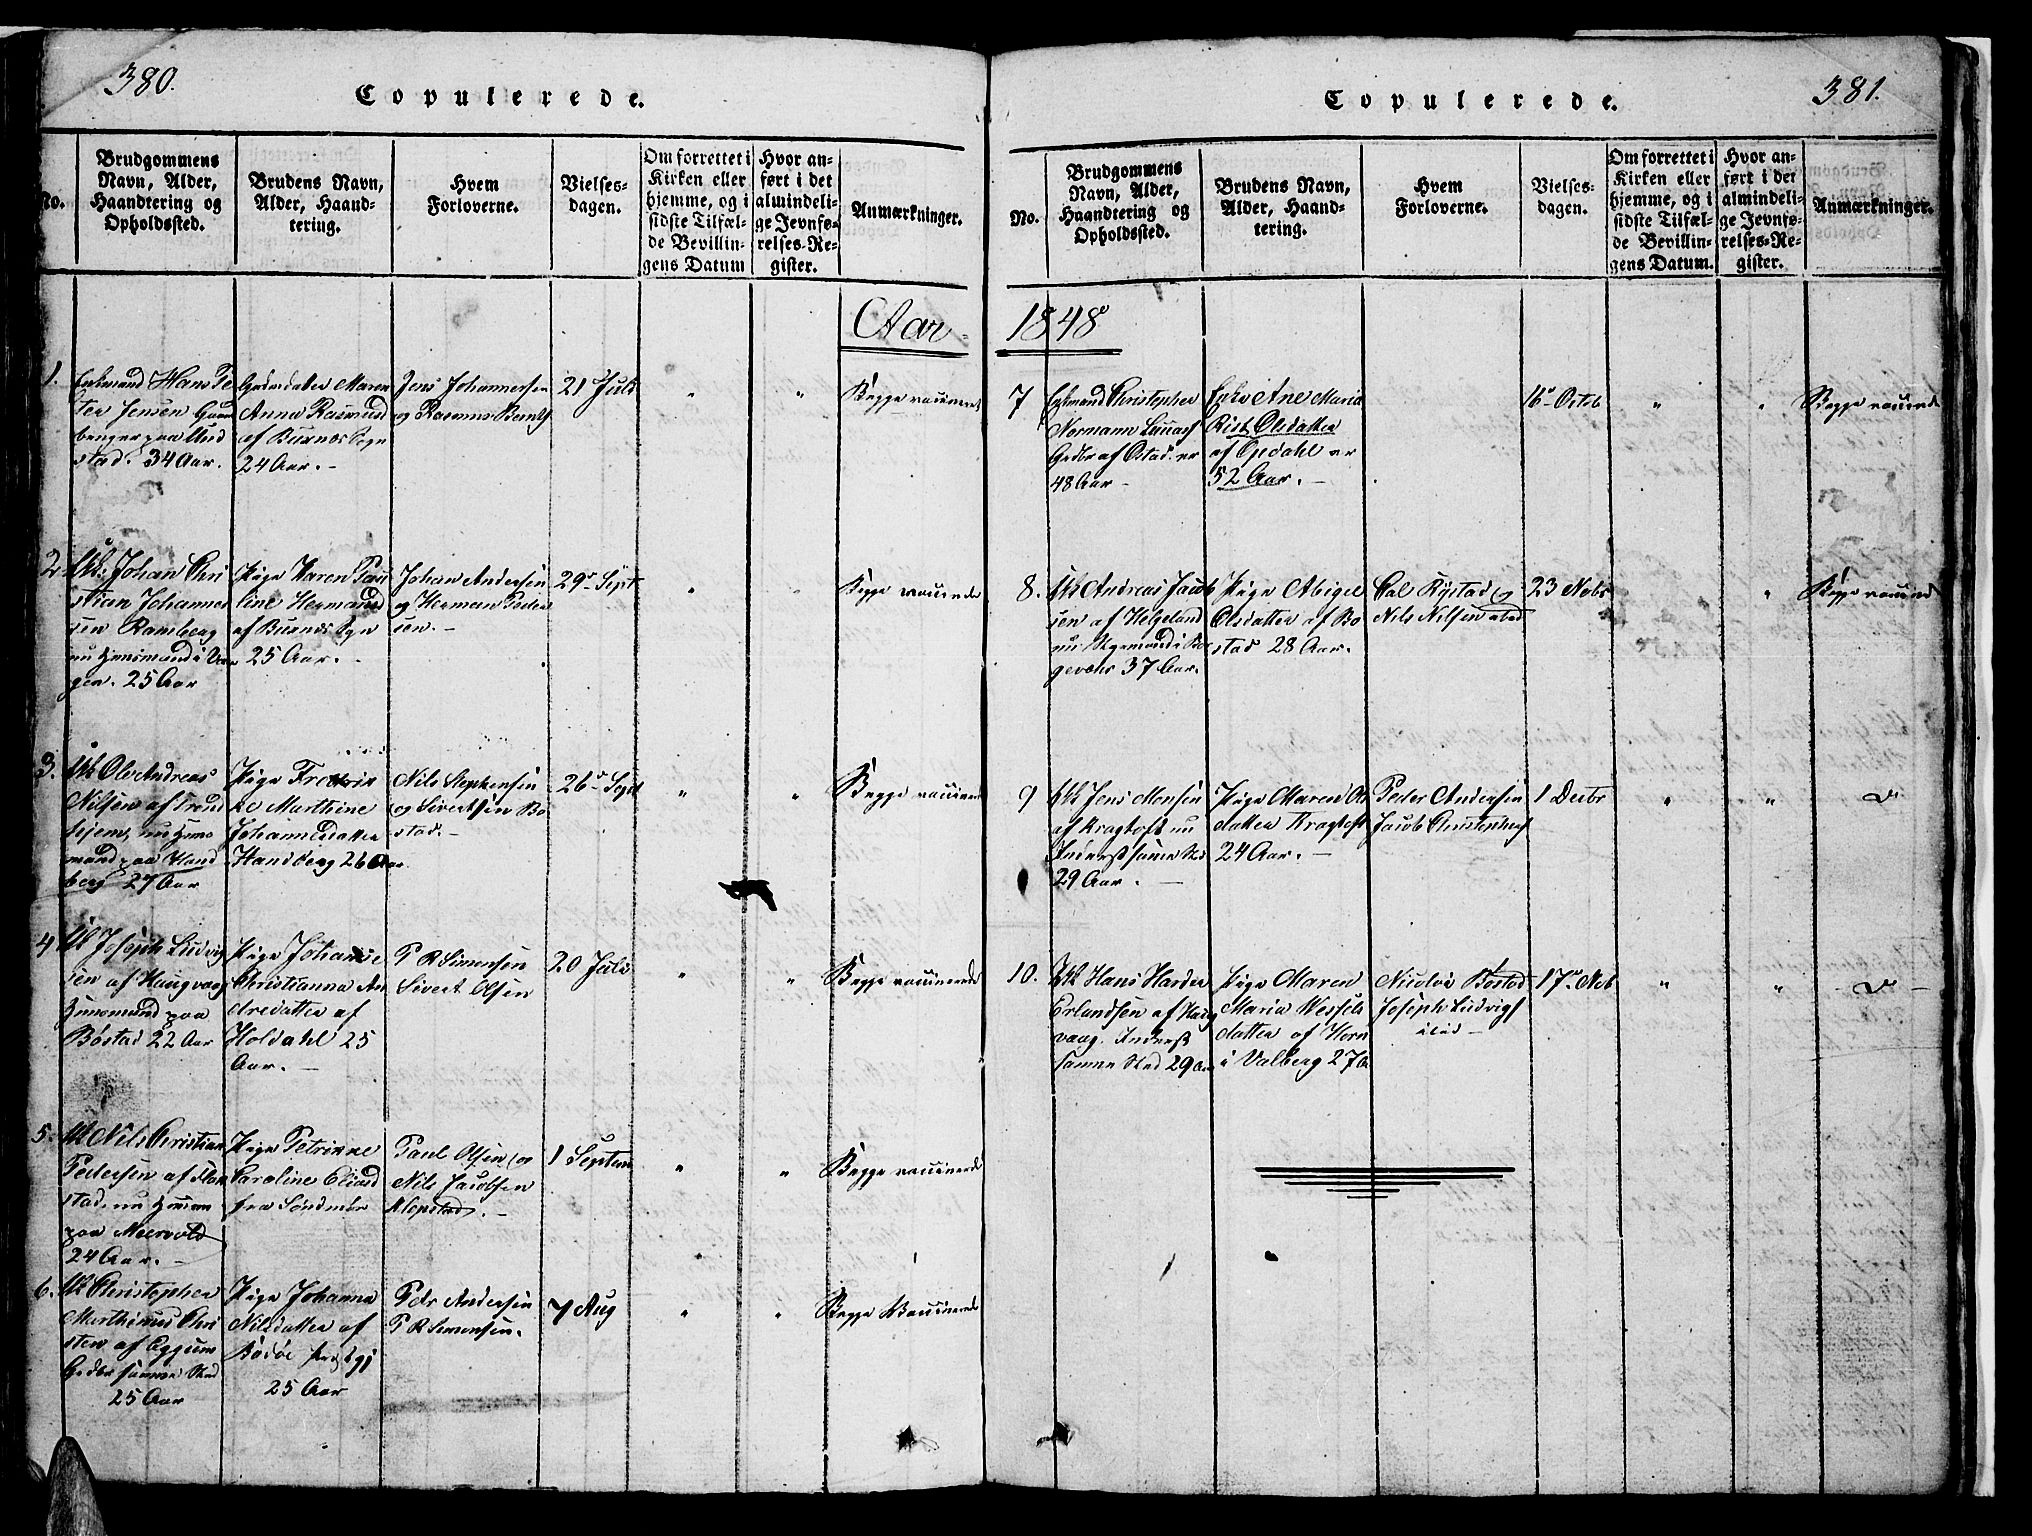 380.
Copulerede.
No.
Brudgommens
Navn, Alder,
Haandtering og
Opholdssted.
Brudens Navn,
Alder, Haand-
tering.
Hvem
Forloverne.
Vielses-
dagen.
Om forrettet i
Kirken eller
hjemme, og i
sidste Tilfæl-
de Bevillin-
gens Datum
Hvor an-
ført i det
almindeli-
ge Jevnfø-
relses-Re-
gister.
Anmærkninger.
Aar
1.
Enkmand Hans Pe
ter Jensen
paa
stad. 34 Aar.
Maren
Anna Rasmusd
af Buxnes Sogn
24 Aar. -
Jens Johannessen
og Rasmus
21 Juli
" "
Begge vaccineret
2
Uk. Johan Chri
stian Johannes
sen Ramberg
nu Huusmand i
gen. 25 Aar
Pige Karen Pau
line Hermansd
af Buxnes Sogn
25 Aar. -
Johan Andersen
og Herman Peder
sen. -
29 Sept
" "
Begge vaccinerede
3.
Uk Ole Andreas
Nilsen af Trond
hjem, nu Huus
mand paa Hand
berg 27 Aar
Pige Fredrik
ke Marthine
Johannesdatter
Handberg 26 Aar
Nils Stephensen
og Sivertsen Bø
stad. -
26 Sept
" "
Begge vaccinerede
4
Uk Joseph Ludvig
sen af Haugvaag
Huusmand paa
Bøstad 22 Aar
Pige Johanne
Christianna An
dredatter af
Holdahl 25
Aar. -
P R Simonsen
Sivert Olsen
20 Juli
" "
Begge vaccinerede
5.
Uk Nils Christian
Pedersen af
stad, nu Huusm
paa Meervold
24 Aar. -
Pige Petrikke
Caroline Eliasd
fra Søndmør
Paul Olsen og
Nils Jacobsen
Klepstad. -
1 Septem
" "
Begge vaccinerede
6.
Uk Christopher
Marthinus Chri
sten af Eggum
Gadbr samme Sted
25 Aar
Pige Johanna
Nilsdatter af
Bodøe
25 Aar
Pedr Andersen
P R Simonsen.
7 Aug
" "
Begge Vaccinerede
381.
Copulerede.
No.
Brudgommens
Navn, Alder,
Haandtering og
Opholdssted.
Brudens Navn,
Alder, Haand-
tering.
Hvem
Forloverne.
Vielses-
dagen.
Om forrettet i
Kirken eller
hjemme, og i
sidste Tilfæl-
de Bevillin-
gens Datum.
Hvor an-
ført i det
almindeli-
ge Jevnfø-
relses-Re-
gister.
Anmærkninger.
1848
7
Enkmand Christopher
Normann
af Ostad. er
48 Aar -
Enke Ane Maria
Rist Olsdatter
af Opdahl er
52 Aar. -
16 Octob
" "
Begge vaccinerede
8.
Uk Andreas Jacob
sen af Helgeland
nu
37 Aar.
Pige Abigel
Olsdatter af Bø
stad 28 Aar. -
Nils Nilsen
23 Nobr
"
Begge vaccinerede
9
Uk Jens Monsen
af Kragtoft nu
samme Sted
29 Aar. -
Pige Maren Ols
datter Kragtoft
24 Aar. -
Peder Andersen
Jacob Christophers
1 Decbr
" "
10.
Uk Hans Harder
Erlandsen af Haug
vaag.
samme Sted 29 Aar
Pige Maren
Maria Wessels
datter af Horn
i Valberg 27 Aar
Nicolai Bøstad
Joseph Ludvigs
ibid -
17 Nob
" "